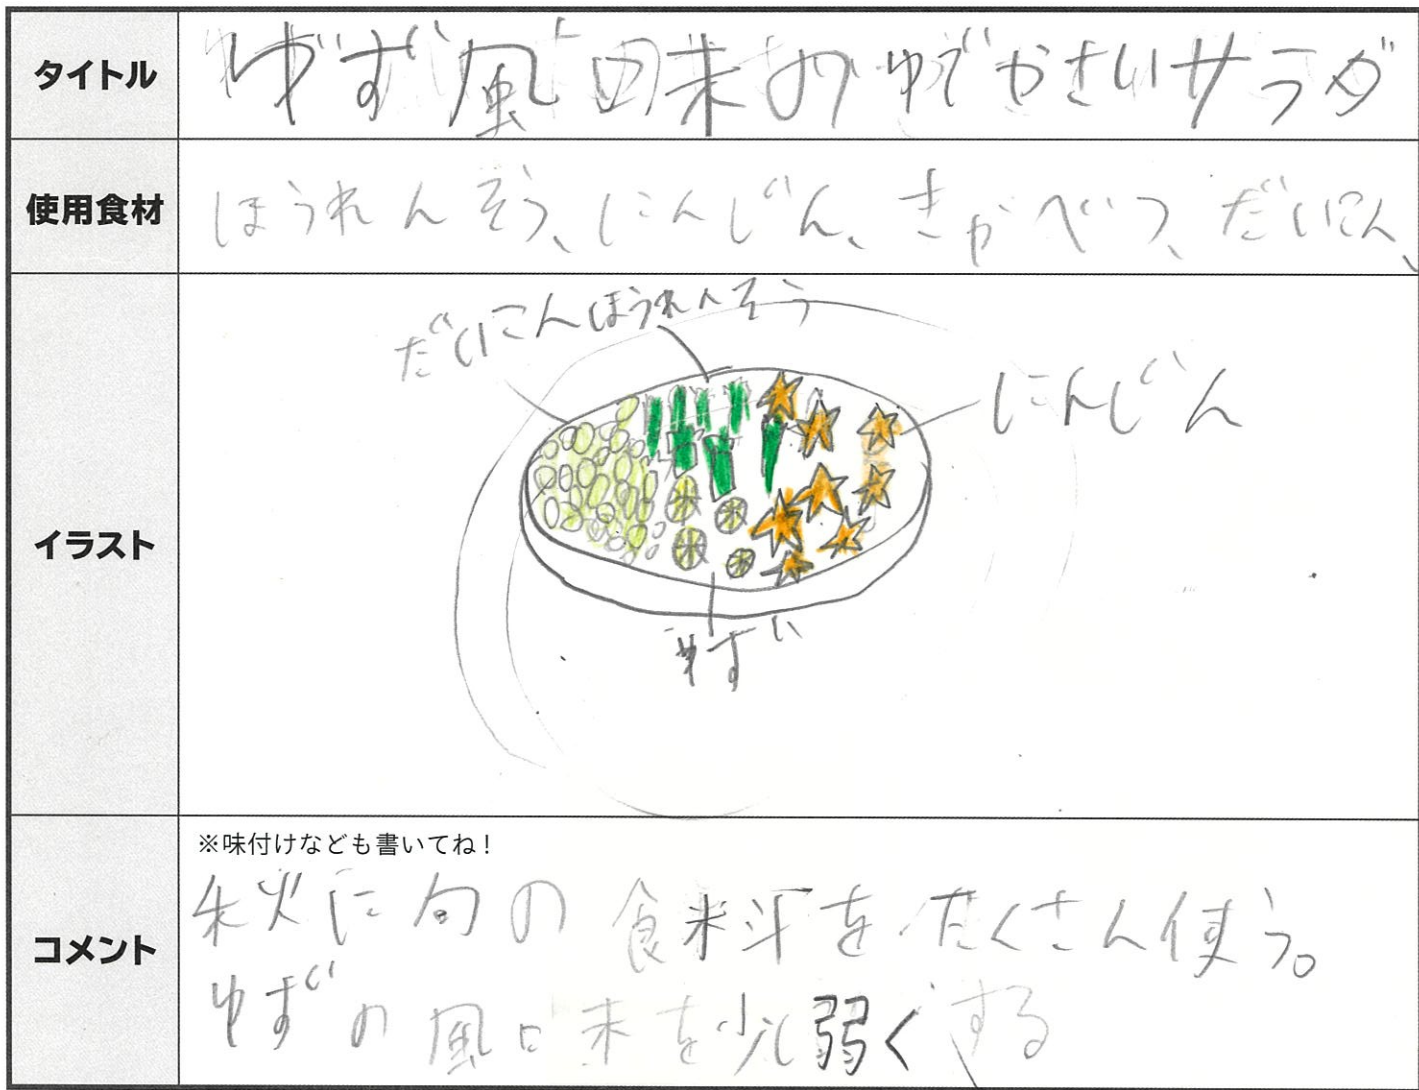 タイトル
ゆず風味のゆでやさいサラダ
使用食材
ほうれんそう、にんじん、きゃべつ、だいこん、
イラスト
だいこん ほうれんそう
にんじん
ゆず
コメント
※味付けなども書いてね!
秋に旬の食料をたくさん使う。
ゆずの風味を少し弱くする